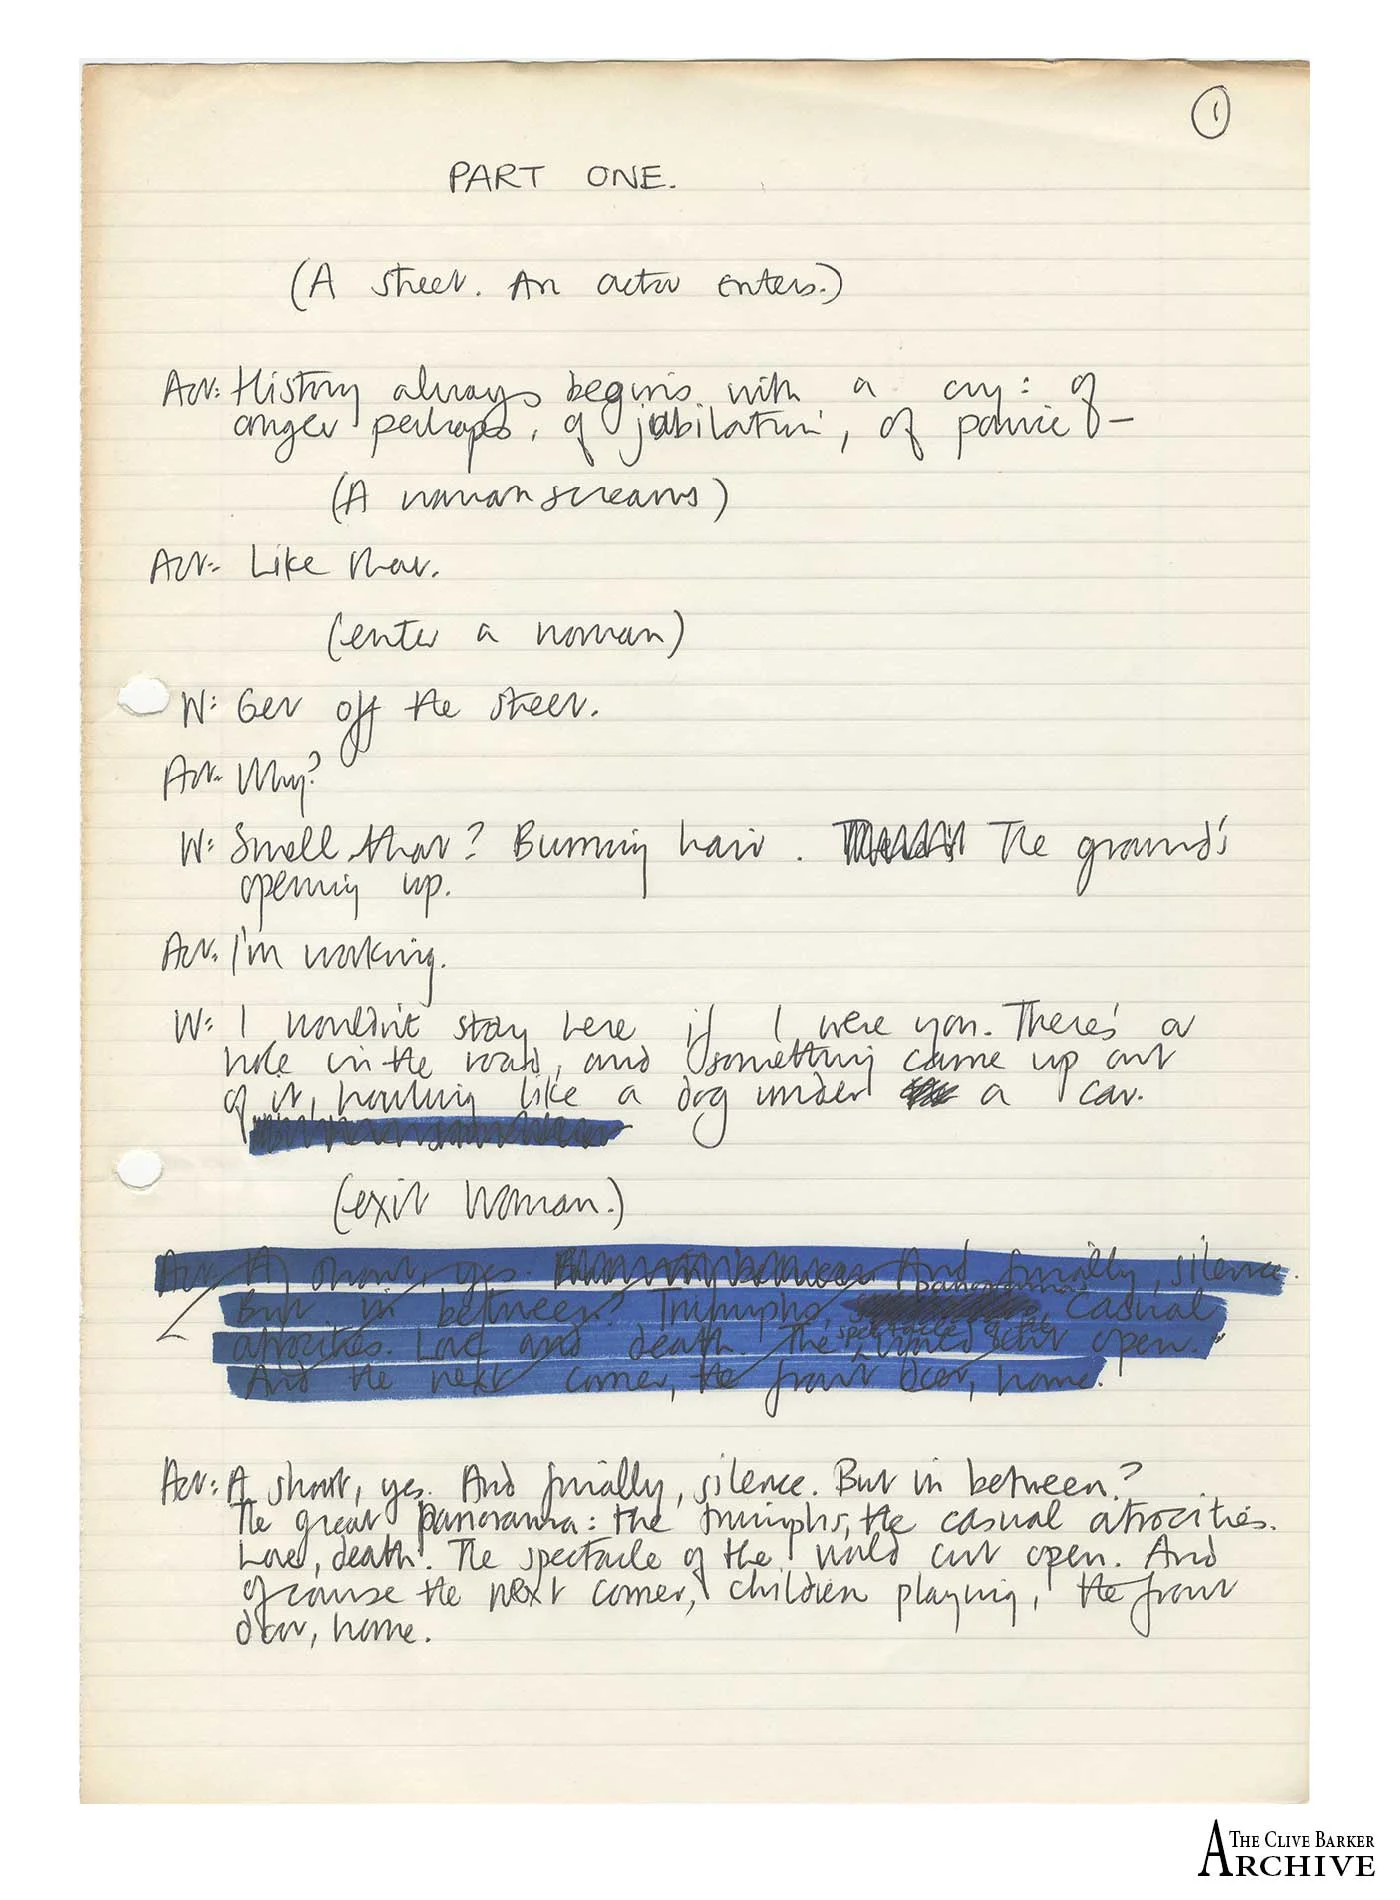 1
PART ONE.
(A street. An actor enters.)
Act: History always begins with a cry: of
anger perhaps, of jubilation, of panic –
(A woman screams)
Act: Like that.
(enter a woman)
W: Get off the street.
Act: Why?
W: Smell that? Burning hair. The ground's
opening up.
Act: I'm working.
W: I wouldn't stay here if I were you. There's a
hole in the road, and something came up out
of it, howling like a dog under a car.
(exit woman.)
Act: A shout, yes. And finally, silence.
panorama
But in between? Triumphs, casual
atrocities. Love and death. The spectacle of the world cut open.
And the next corner, the front door, home.
Act: A shout, yes. And finally, silence. But in between?
The great panorama: the triumphs, the casual atrocities.
Love, death. The spectacle of the world cut open. And
of course the next corner, children playing, the front
door, home.
THE CLIVE BARKER
ARCHIVE